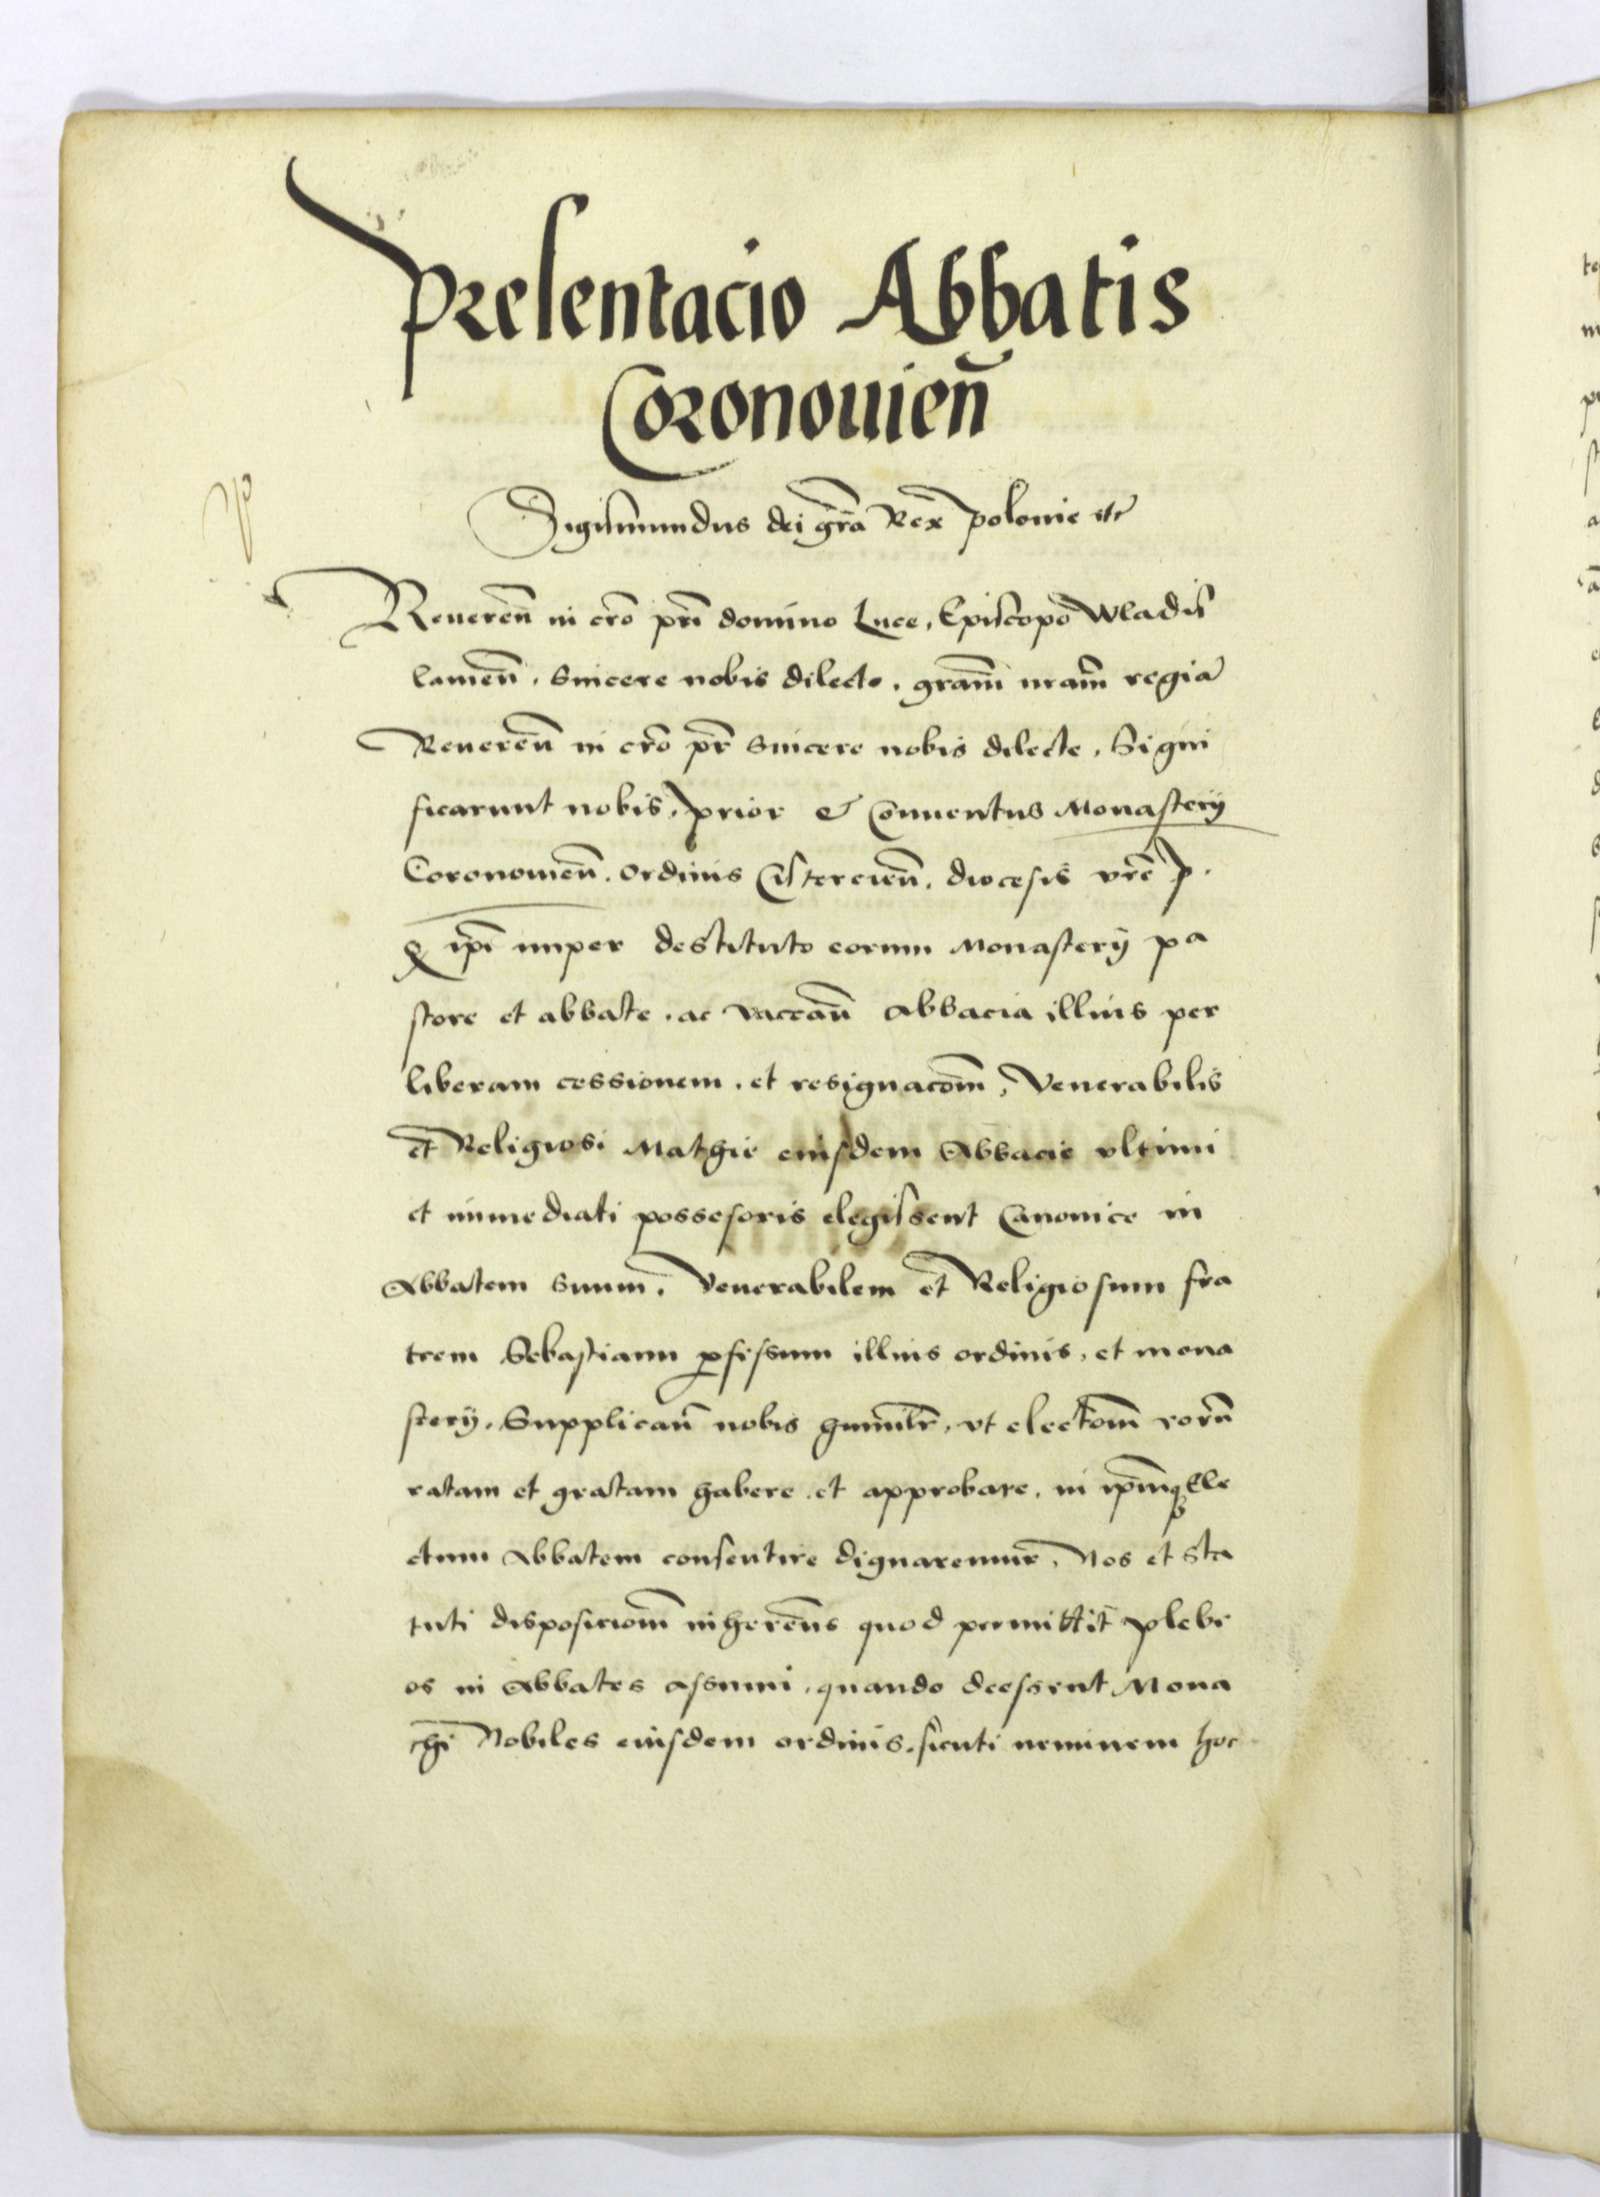 Presentacio Abbatis
Coronouien̄
Sigismundus dei gr̄a Rex polonie etc
Reueren̄ in cr̄o pr̄i domino Luce, Episcopo Wladis
lauien̄. Sincere nobis dilecto. gram̄ nram̄ regiā
Reueren̄ in cr̄o pr̄ sincere nobis dilecte. Signi
ficarunt nobis, prior & Conuentus Monasterij
Coronouien̄. ordinis Cistercien̄. diocesis vrē
ip̄i nuper destituto eorum Monasterij pa
store et abbate. ac vacan̄ Abbacia illius per
liberam cessionem. et resignacōm̄, Venerabilis
et Religiosi Mathie eiusdem Abbacie vltimi
et immediati possesoris elegissent Canonice in
Abbatem suum. Venerabilem et Religiosum fra
trem Sebastianu ꝓfessum illius ordinis. et mona
sterij. Supplican̄ nobis humilr̄. vt electiom̄ eorū
ratam et gratam habere. et approbare. in ip̄mq̧ Ele
ctum Abbatem consentire dignaremur̄. Nos et sta
tuti disposiciom̄ inheren̄s quod permittit plebe
os in Abbates assumi. quando deessent Mona
chi Nobiles eiusdem ordinis. sicuti neminem hoc